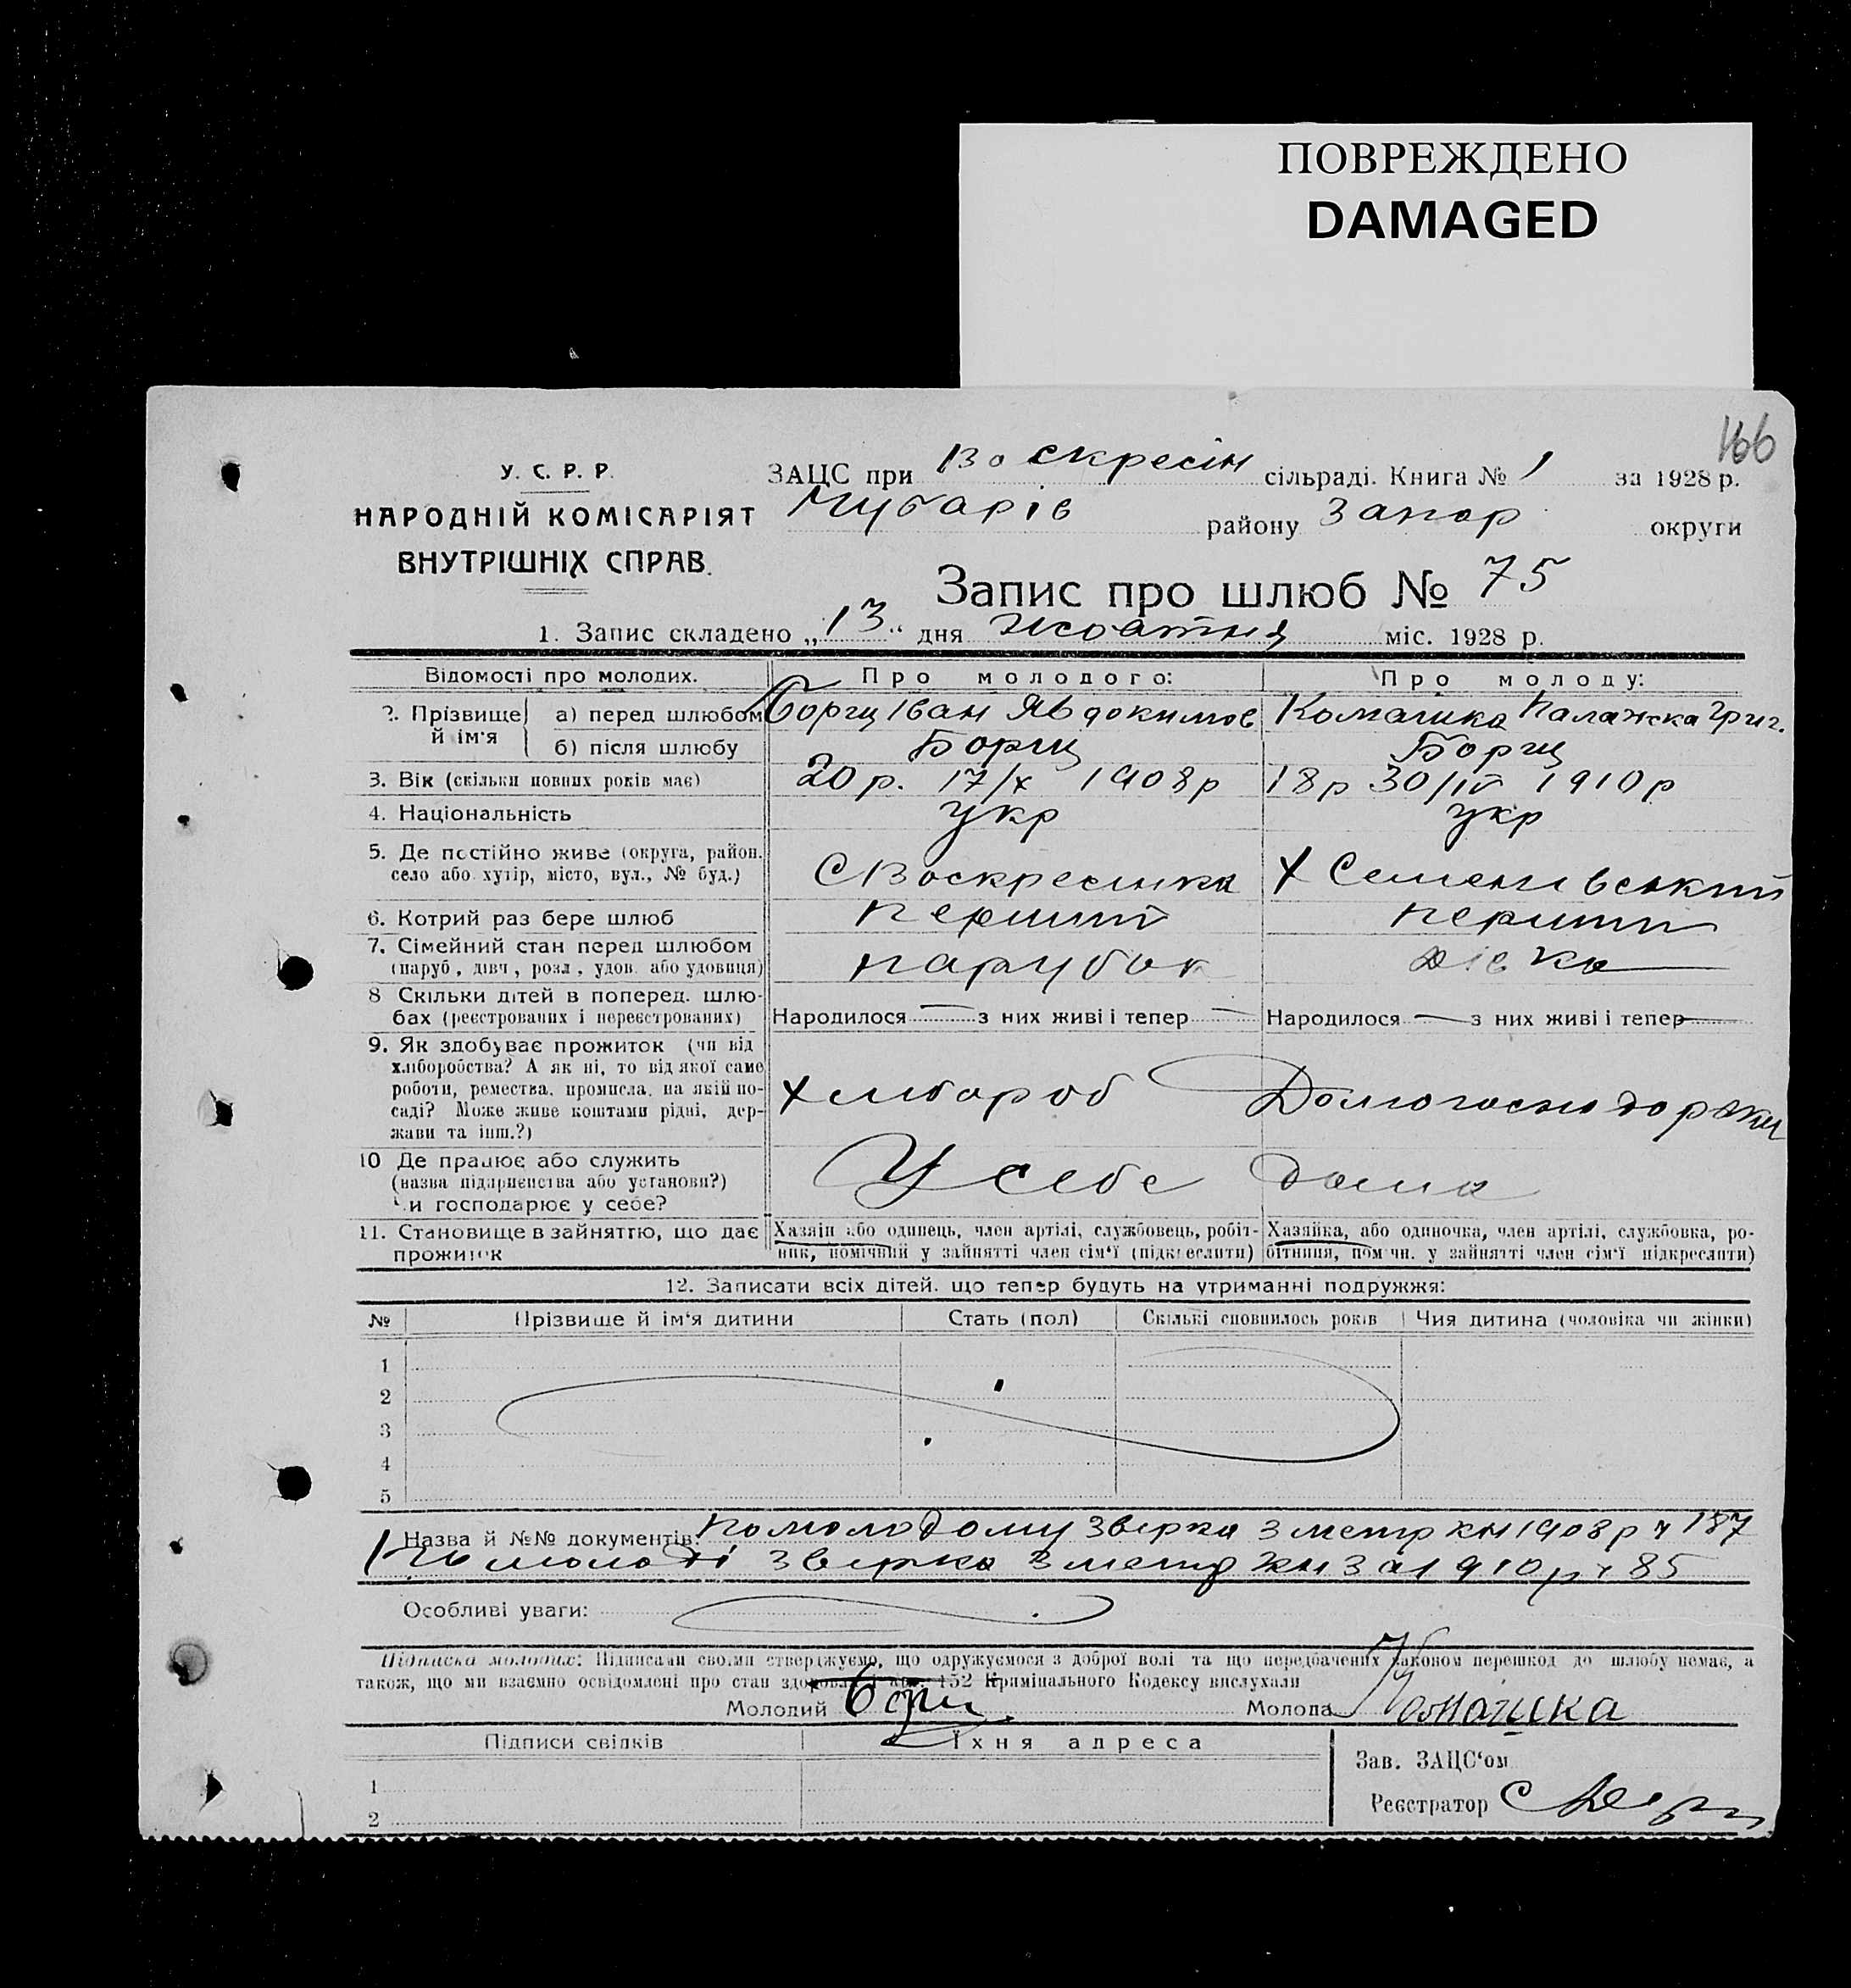 ПОВРЕЖДЕНО
DAMAGED
166
У. С. Р. Р.
НАРОДНІЙ КОМІСАРІЯТ
ВНУТРІШНІХ СПРАВ.
ЗАЦС при Воскресін сільраді. Книга № 1 за 1928 р.
Чубарів району Запор округи
Запис про шлюб № 75
1. Запис складено „13“ дня жовтня міс. 1928 р.
Відомості про молодих. Про молодого: Про молоду:
2. Прізвище й ім'я а) перед шлюбом Борщ Іван Явдокимов Палажка Григ.
б) після шлюбу Борщ Борщ
3. Вік (скільки повних років має) 20 р. 17/х 1908 р 18 р 30/IV 1910 р
4. Національність укр укр
5. Де постійно живе (округа, район,
село або хутір, місто, вул., № буд.) С Воскресинка Х Семенівський
6. Котрий раз бере шлюб перший перший
7. Сімейний стан перед шлюбом
(паруб., дівч., розл., удов. або удовиця) парубок дівка
8 Скільки дітей в поперед. шлю-
бах (реєстрованих і нереєстрованих) Народилося — з них живі і тепер — Народилося — з них живі і тепер —
9. Як здобуває прожиток (чи від
хліборобства? А як ні, то від якої саме
роботи, ремества, промисла, на якій по-
саді? Може живе коштами рідні, дер-
жави та інш.?)
Хлибороб Домогосподарка
10 Де працює або служить
(назва підприємства або установи?)
Чи господарює у себе?
У себе дома
11. Становище в зайняттю, що дає
прожиток
Хазяїн або одинець, член артілі, службовець, робіт-
ник, помічний у зайнятті член сім'ї (підкреслити)
Хазяйка, або одиночка, член артілі, службовка, ро-
бітниця, помічн. у зайнятті член сім'ї підкреслити)
12. Записати всіх дітей, що тепер будуть на утриманні подружжя:
№ Прізвище й ім'я дитини Стать (пол) Скількі сповнилось років Чия дитина (чоловіка чи жінки)
1
2
3
4
5
Назва й №№ документів: По молодому звірка з метр кн 1908 р ч 187
По молоді звірка з метр кн за 1910 р ч 85
Особливі уваги:
Підписка молодих: Підписами своїми стверджуємо, що одружуємося з доброї волі та що передбачених законом перешкод до шлюбу немає, а
також, що ми взаємно освідомлені про стан здоровля і арт. 152 Кримінального Кодексу вислухали
Молодий Борщ Молода
Підписи свідків Їхня адреса
1
2
Зав. ЗАЦС'ом
Реєстратор